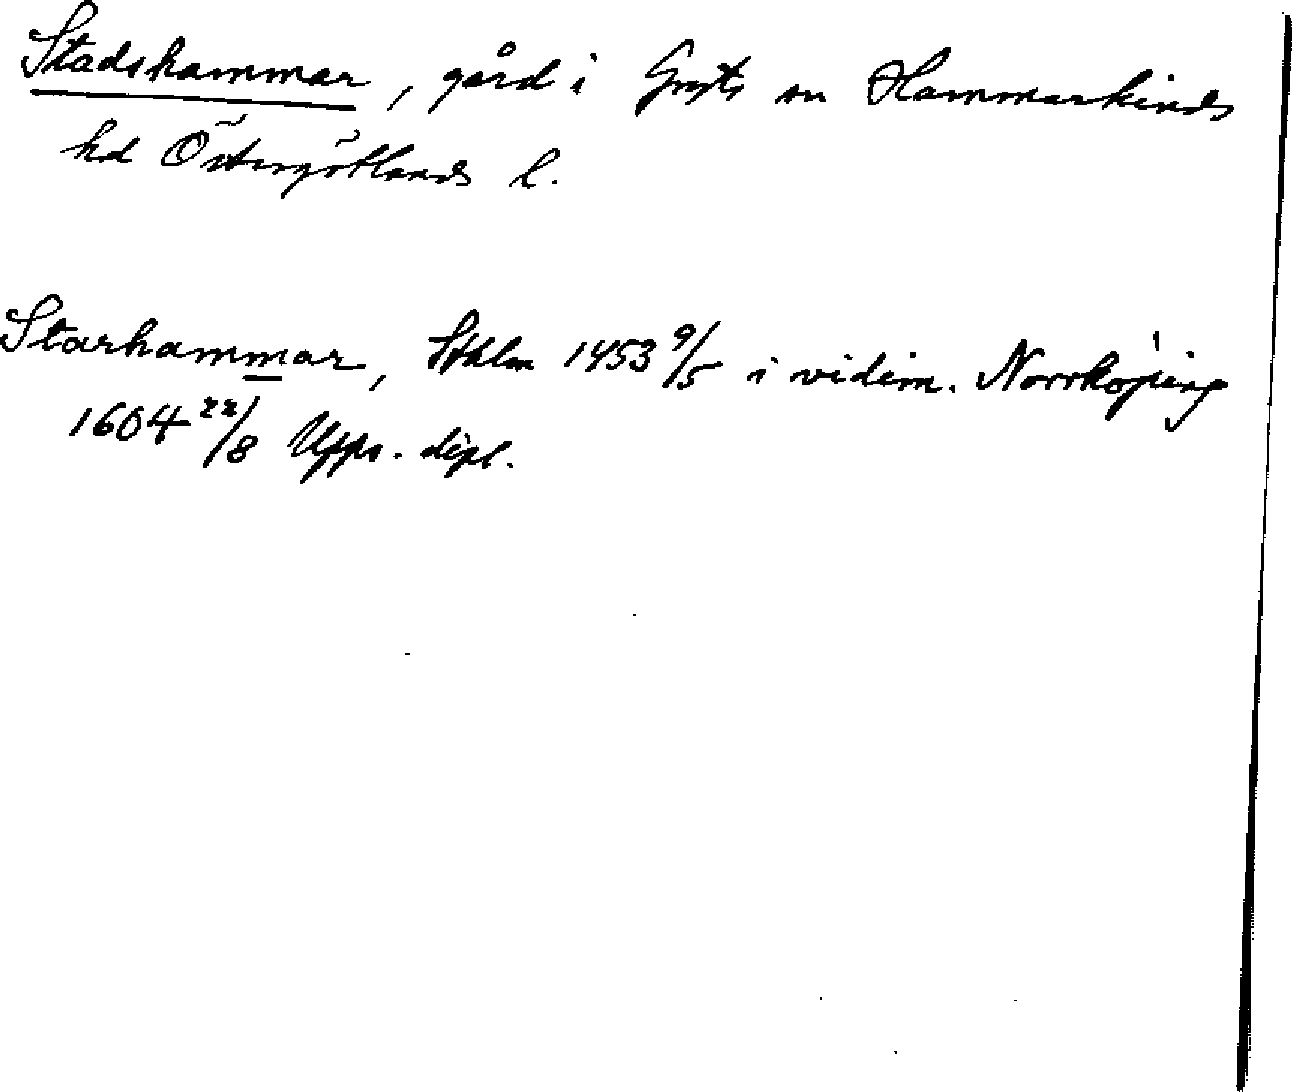 Stadshammar, gård i Gryts sn Hammarkinds
hd Östergötlands l.
Starhammar, Sthlm 1453 9/5 i vidim. Norrköping
1604 22/8 Upps. dipl.